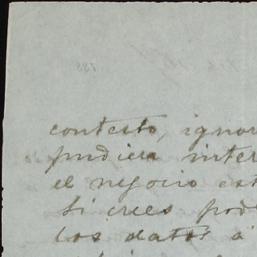 contesto, ignor
pudiera inter
el negocio est
Si crees pod
los datos á